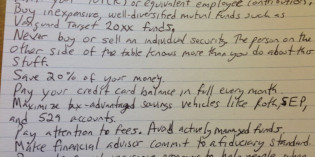 your 401(k) or equivalent employee contribution.
Buy inexpensive, well-diversified mutual funds such as
Vanguard Target 20xx funds.
Never buy or sell an individual security. The person on the
other side of the table knows more than you do about this
stuff.
Save 20% of your money.
Pay your credit card balance in full every month.
Maximize tax-advantaged savings vehicles like Roth, SEP,
and 529 accounts.
Pay attention to fees. Avoid actively managed funds.
Make financial advisor commit to a fiduciary standard.